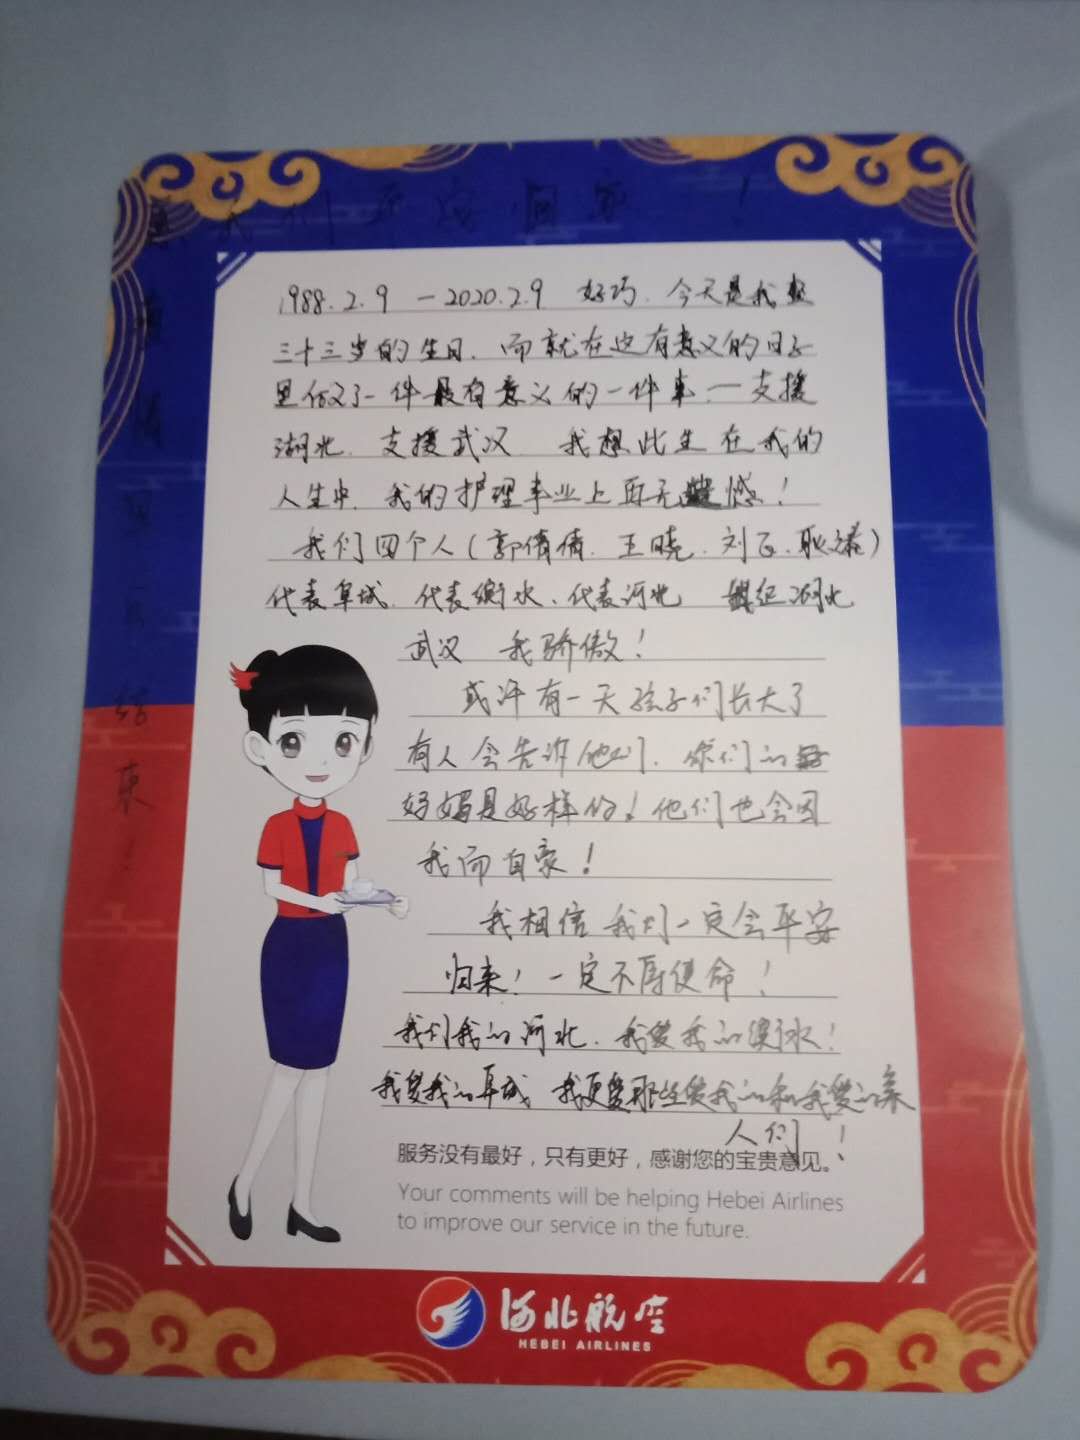 我们平安回家！
疫情早日结束！
1988.2.9 —2020.2.9 好巧、今天是我
三十三岁的生日、而就在这有意义的日子
里做了一件最有意义的一件事.—支援
湖北、支援武汉 我想此生在我的
人生中、我的护理事业上再无遗憾！
我们四个人（郭倩倩、王晓、刘、耿）
代表阜城、代表衡水、代表河北 湖北
武汉 我骄傲！
或许有一天孩子们长大了
有人会告诉他们、你们的
妈妈是好样的！他们也会因
我而自豪！
我相信我们一定会平安
归来！一定不辱使命！
我们我的河北、我爱我的衡水！
我爱我的阜城 我更爱那些爱我的和我爱的亲
人们！
服务没有最好，只有更好，感谢您的宝贵意见。
Your comments will be helping Hebei Airlines
to improve our service in the future.
河北航空
HEBEI AIRLINES